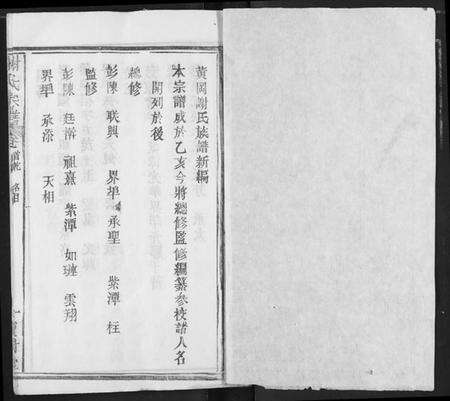 黃岡謝氏族譜新編
本宗譜成於乙亥今將總修監修編纂參校諸人名
開列於後
總修
彭陳 联興 界埠 承聖 紫潭 柱
監修
彭陳 廷 祖熹 紫潭 如璉 雲翔
界埠 承添 天相
謝氏宗譜 卷首